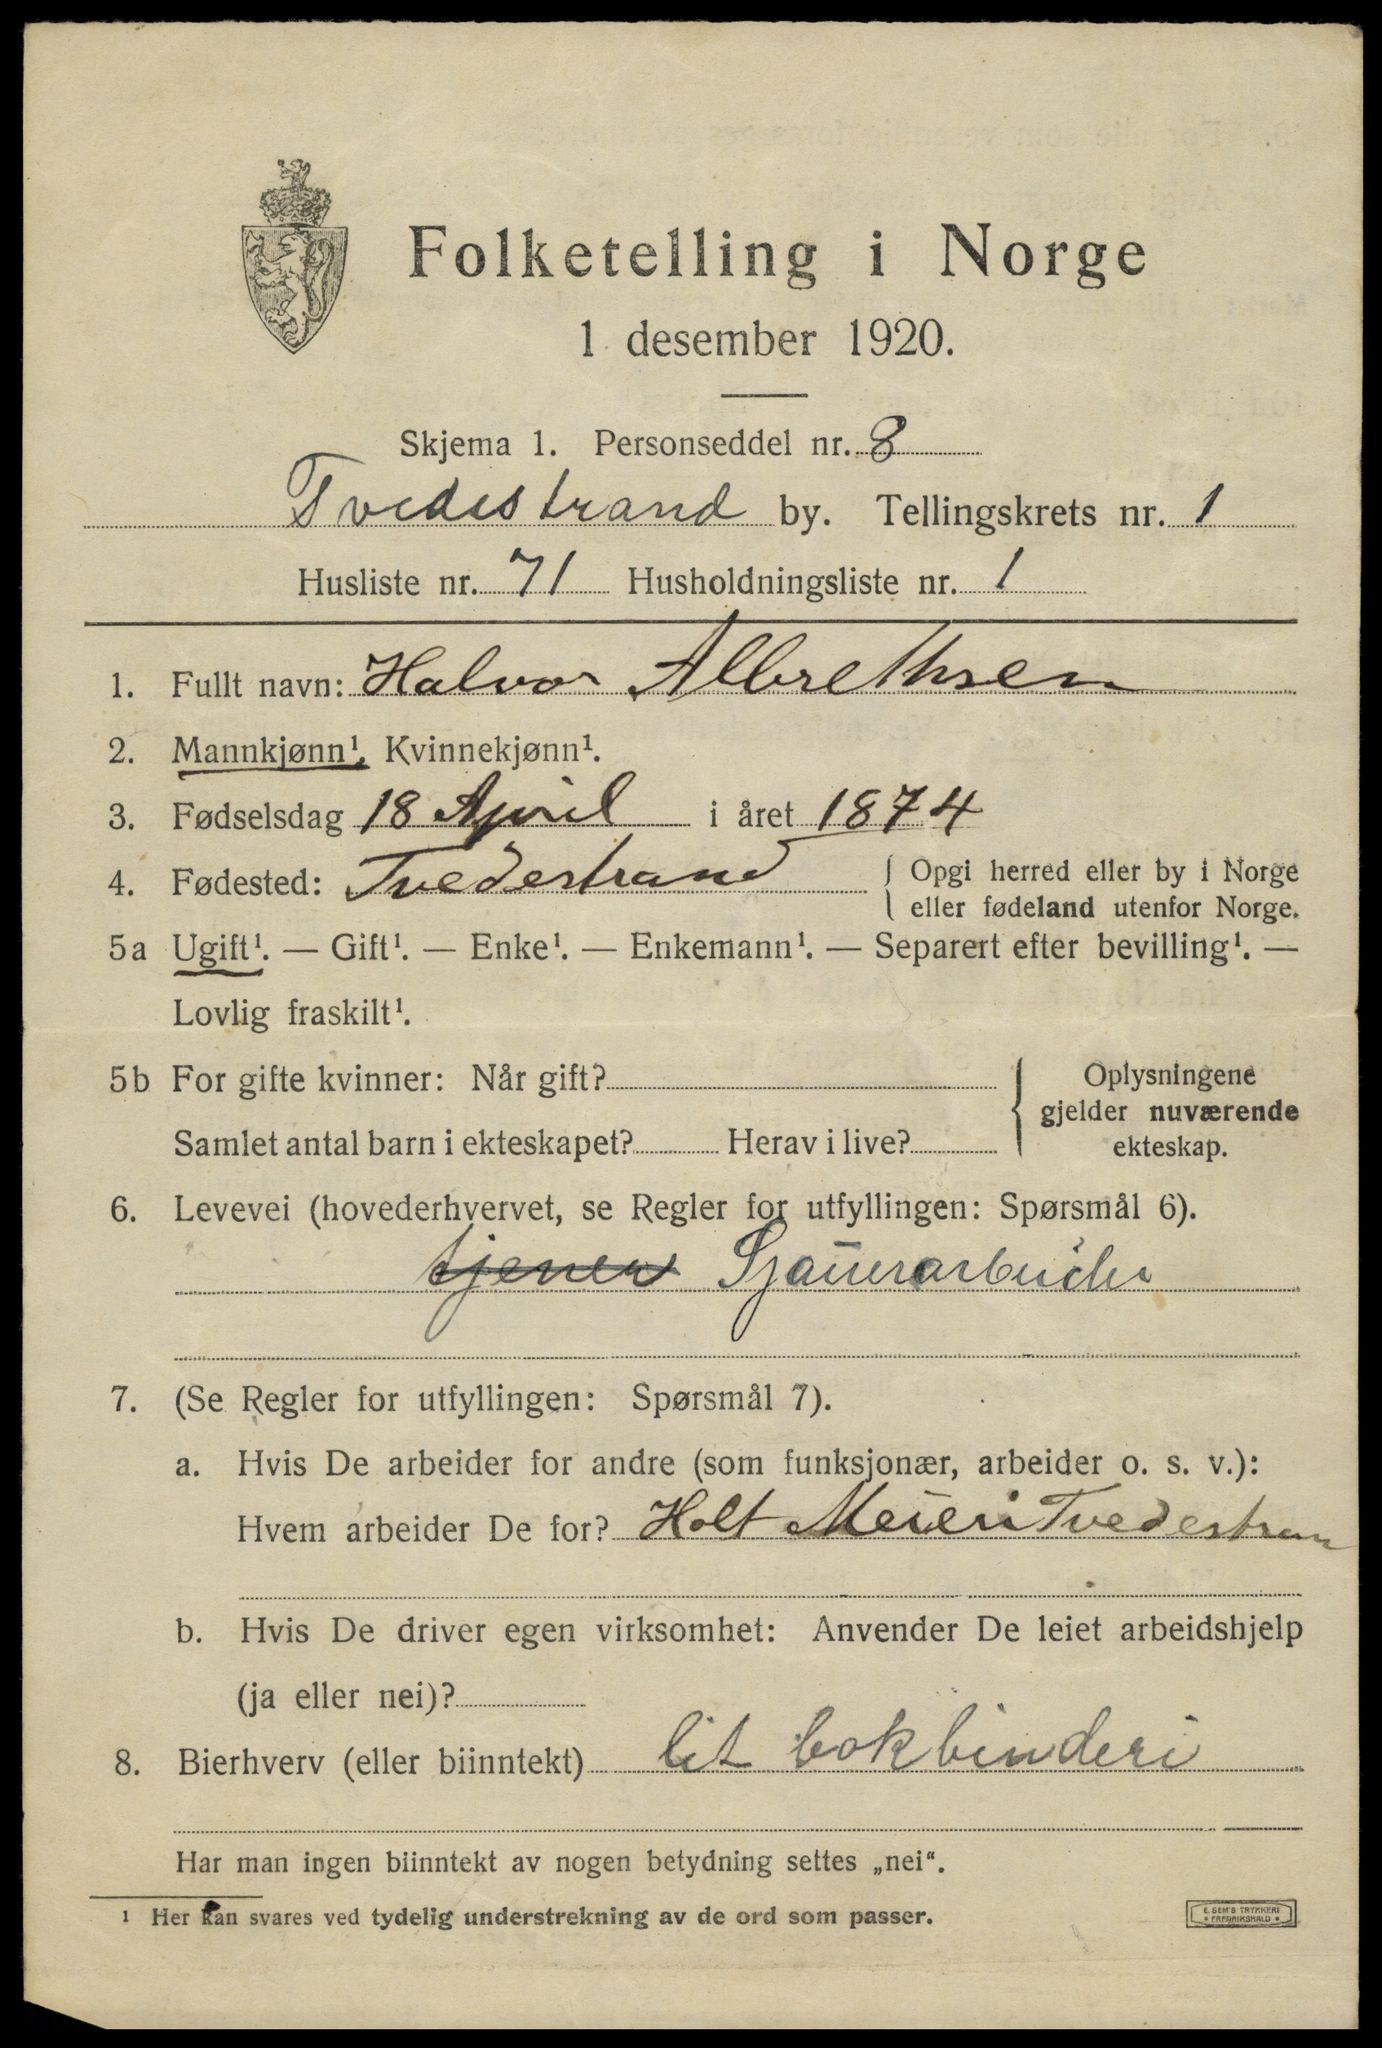 Folketelling i Norge
1 desember 1920.
Skjema 1. Personseddel nr. 8
Tvedestrand by. Tellingskrets nr. 1
Husliste nr. 71 Husholdningsliste nr. 1
1. Fullt navn: Halvor Albrethsen
2. Mannkjønn¹. Kvinnekjønn¹.
3. Fødselsdag 18 April i året 1874
4. Fødested: Tvedestrand { Opgi herred eller by i Norge
eller fødeland utenfor Norge.
5a Ugift¹. — Gift¹. — Enke¹. — Enkemann¹. — Separert efter bevilling¹. —
Lovlig fraskilt¹.
5b For gifte kvinner: Når gift?
Samlet antal barn i ekteskapet? Herav i live?
{ Oplysningene
gjelder nuværende
ekteskap.
6. Levevei (hovederhvervet, se Regler for utfyllingen: Spørsmål 6).
tjener Sjauerarbeider
7. (Se Regler for utfyllingen: Spørsmål 7).
a. Hvis De arbeider for andre (som funksjonær, arbeider o. s. v.):
Hvem arbeider De for? Holt Meieri Tvedestran
b. Hvis De driver egen virksomhet: Anvender De leiet arbeidshjelp
(ja eller nei)?
8. Bierhverv (eller biinntekt) lit bokbinderi
Har man ingen biinntekt av nogen betydning settes „nei".
¹ Her kan svares ved tydelig understrekning av de ord som passer.
E. SEM'S TRYKKERI
• FREDRIKSHALD •